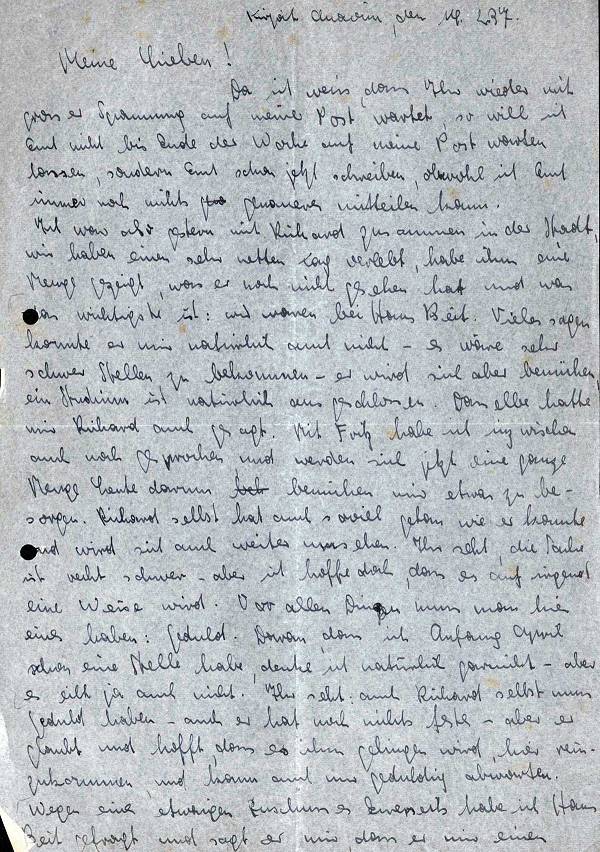 Kirjath Anavim, den 19. 2. 37.
Meine Lieben!
Da ich weiss, dass Ihr wieder mit
grosser Spannung auf meine Post wartet, so will ich
Euch nicht bis Ende der Woche auf meine Post warten
lassen, sondern Euch schon jetzt schreiben, obwohl ich Euch
immer noch nichts genaueres mitteilen kann.
Ich war also gestern mit Richard zusammen in der Stadt,
wir haben einen sehr netten Tag verlebt, habe ihm eine
Menge gezeigt, was er noch nicht gesehen hat und was
das wichtigste ist: wir waren bei Hans Beit. Vieles sagen
konnte er mir natürlich auch nicht - es wäre sehr
schwer Stellen zu bekommen - er wird sich aber bemühen,
ein Studium ist natürlich ausgeschlossen. Dasselbe hatte
mir Richard auch gesagt. Mit Fritz habe ich inzwischen
auch noch gesprochen und werden sich jetzt eine ganze
Menge Leute darum bemühen mir etwas zu be-
sorgen. Richard selbst hat auch soviel getan wie er konnte
und wird sich auch weiter umsehen. Ihr seht, die Sache
ist recht schwer - aber ich hoffe doch, dass es auf irgend
eine Weise wird. Vor allen Dingen muss man hier
eines haben: Geduld. Daran, dass ich Anfang April
schon eine Stelle habe, denke ich natürlich garnicht - aber
es eilt ja auch nicht. Ihr seht: auch Richard selbst muss
Geduld haben - auch er hat noch nichts festes - aber er
glaubt und hofft, dass es ihm gelingen wird, hier rein-
zukommen und kann auch nur geduldig abwarten.
Wegen eines etwaigen Zuschusses Eurerseits habe ich Hans
Beit gefragt und sagt er mir, dass er mir einen